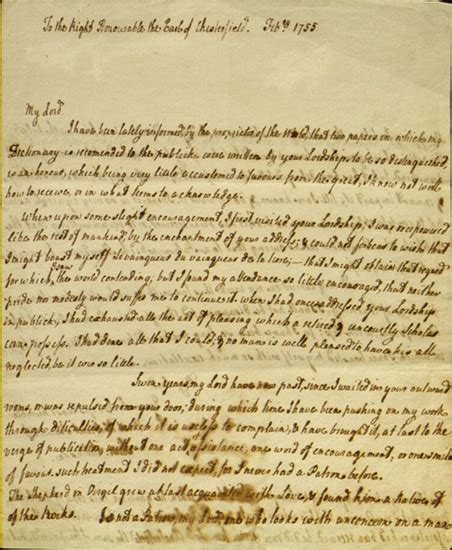 To the Right Honourable the Earl of Chesterfield. Feb.ry 1755
My Lord
I have been lately informed, by the proprietor of the World, that two papers in which my
Dictionary is recomended to the publick were written by your Lordship, to be so distinguished
is an honour, which being very little accustomed to favours from the great, I know not well
how to receive, or in what terms to acknowledge.
When upon some slight encouragement, I first visited your Lordship, I was overpowered
like the rest of mankind, by the enchantment of your address; & could not forbear to wish that
I might boast myself Le vainqueur du vainqueur de la terre; — that I might obtain that regard
for which, I saw the world contending; but I found my attendance so little encouraged, that neither
pride nor modesty would suffer me to continue it. When I had once addressed your Lordship
in publick; I had exhausted all the art of pleasing which a retired & uncourtly Scholar
can possess. I had done all that I could; & no man is well pleased to have his all
neglected, be it ever so little.
Seven years, my Lord have now past, since I waited in your outward
rooms, or was repulsed from your door; during which time I have been pushing on my work
through difficulties, of which it is useless to complain, & have brought it, at last to the
verge of publication, without one act of assistance, one word of encouragement, or one smile
of favour. such treatment I did not expect, for I never had a Patron before.
The Shepherd in Virgil grew at last acquainted with Love, & found him a Native
of the Rocks. Is not a Patron, my Lord, one who looks with unconcern on a man